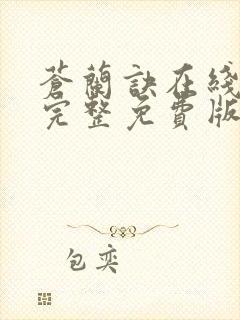 蒼蘭訣在綫
完整免費版
包奕